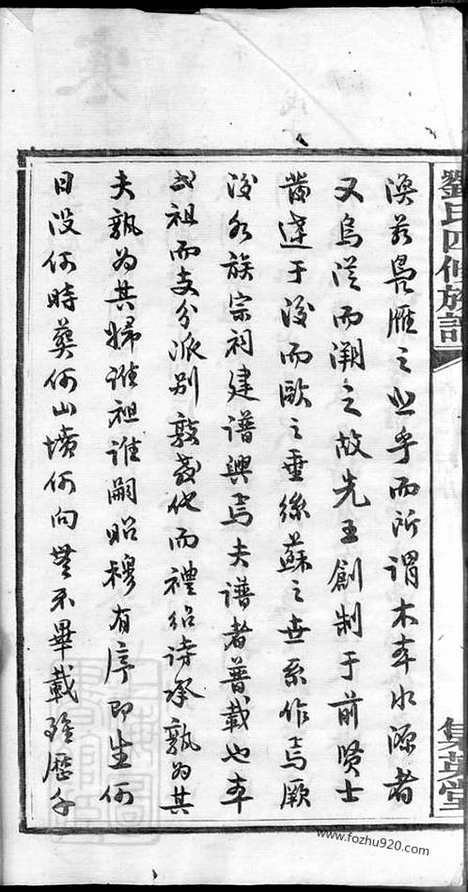 劉氏四修族譜
集英堂
渙若鳧雁之止乎而所謂木本水源者
又烏從而溯之故先王創制于前賢士
啟達于後而歐之垂絲蘇之世系作焉厥
後各族宗祠建譜興焉夫譜者普載也本
氏祖而支分派別敦彝化而禮紹詩承孰為其
夫孰為其婦誰祖誰嗣昭穆有序即生何
日沒何時葬何山墳何向無不畢載雖歷千
www.fozhu920.com